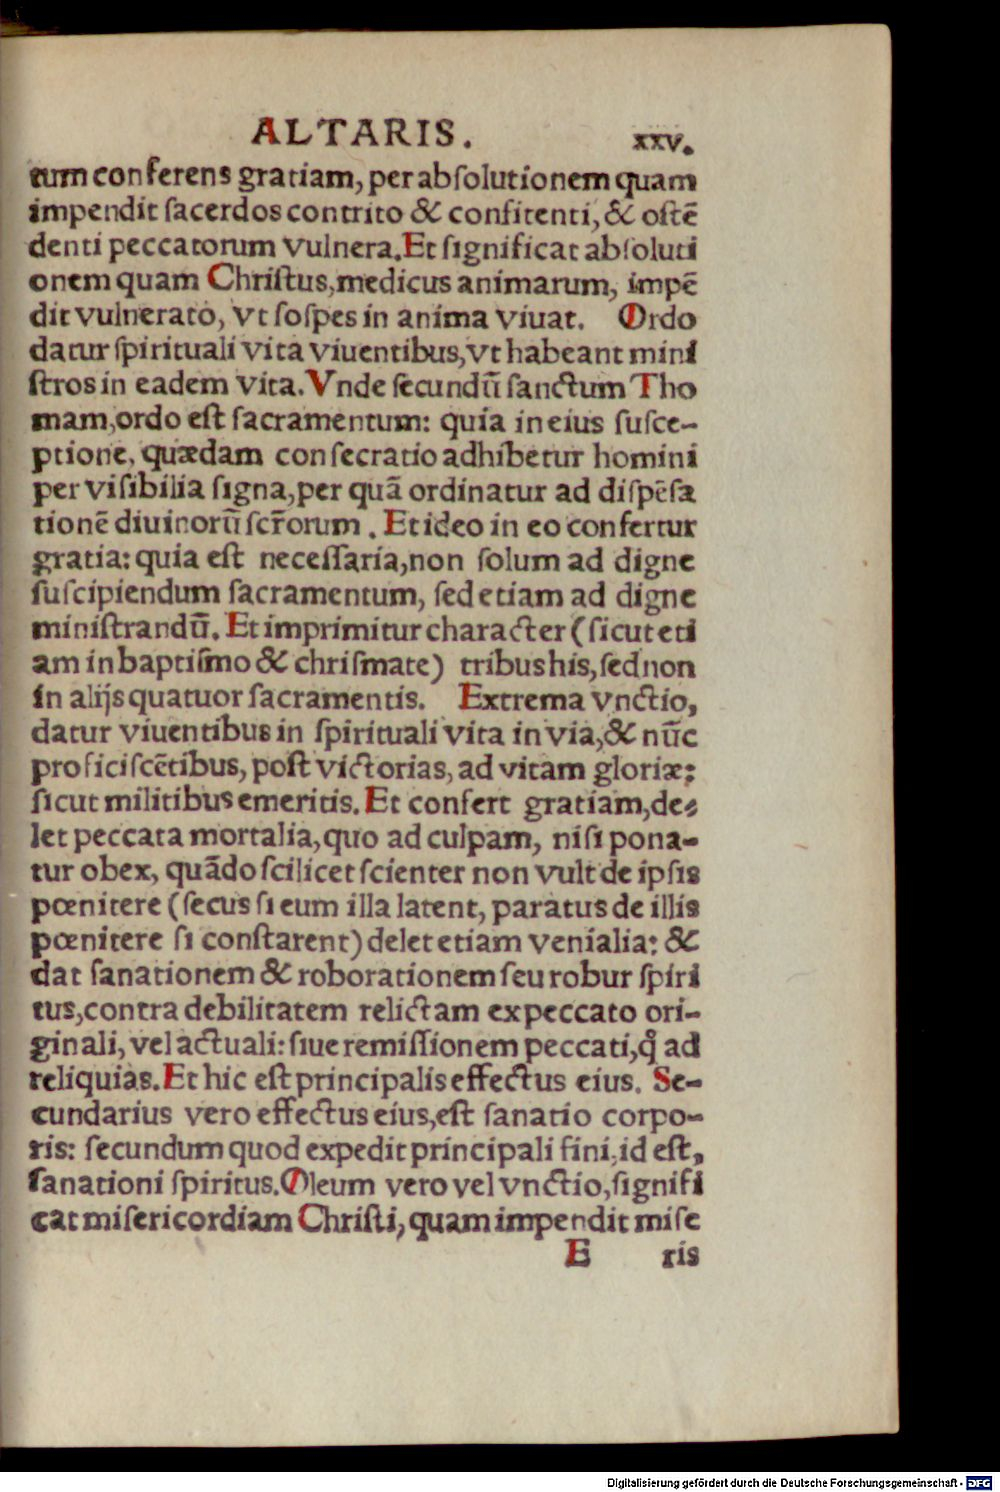 ALTARIS. xxv.
tum conferens gratiam, per abſolutionem quam
impendit ſacerdos contrito & confitenti, & oſtē
denti peccatorum vulnera. Et ſignificat abſoluti
onem quam Chriſtus, medicus animarum, impē
dit vulnerato, vt ſoſpes in anima viuat. Ordo
datur ſpirituali vita viuentibus, vt habeant mini
ſtros in eadem vita. Vnde ſecundū ſanctum Tho
mam, ordo eſt ſacramentum: quia in eius ſuſce-
ptione, quædam conſecratio adhibetur homini
per viſibilia ſigna, per quā ordinatur ad diſpēſa
tionē diuinorū ſcr̄orum. Et ideo in eo confertur
gratia: quia eſt neceſſaria, non ſolum ad digne
ſuſcipiendum ſacramentum, ſed etiam ad digne
miniſtrandū. Et imprimitur character (ſicut eti
am in baptiſmo & chriſmate) tribus his, ſed non
in alijs quatuor ſacramentis. Extrema vnctio,
datur viuentibus in ſpirituali vita in via, & nūc
proficiſcētibus, poſt victorias, ad vitam gloriæ:
ſicut militibus emeritis. Et confert gratiam, de-
let peccata mortalia, quo ad culpam, niſi pona-
tur obex, quādo ſcilicet ſcienter non vult de ipſis
pœnitere (ſecus ſi eum illa latent, paratus de illis
pœnitere ſi conſtarent) delet etiam venialia: &
dat ſanationem & roborationem ſeu robur ſpiri
tus, contra debilitatem relictam ex peccato ori-
ginali, vel actuali: ſiue remiſſionem peccati, ꝙ ad
reliquias. Et hic eſt principalis effectus eius. Se-
cundarius vero effectus eius, eſt ſanatio corpo-
ris: ſecundum quod expedit principali fini, id eſt,
ſanationi ſpiritus. Oleum vero vel vnctio, ſignifi
cat miſericordiam Chriſti, quam impendit miſe
E ris
Digitalisierung gefördert durch die Deutsche Forschungsgemeinschaft - DFG